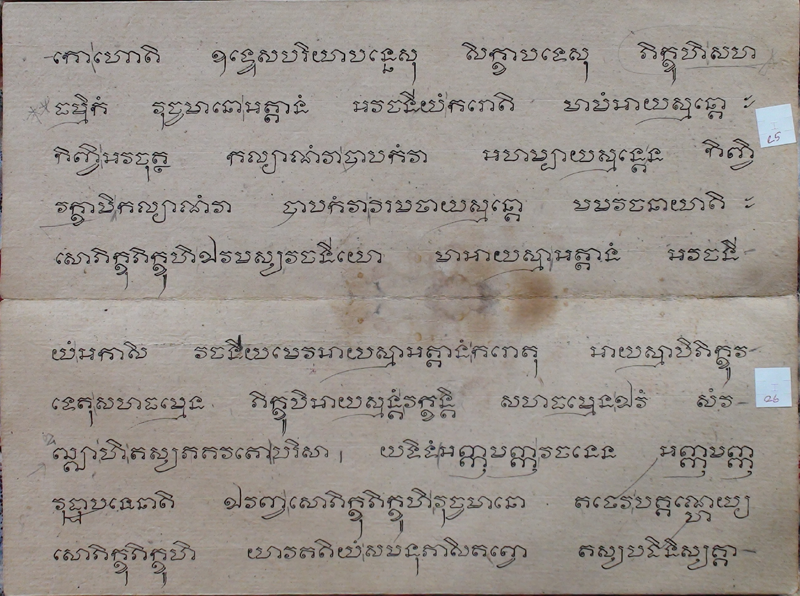 កោហោតិ ឧទ្ទេសបរិយាបន្នេសុ សិក្ខាបទេសុ ភិក្ខូហិសហ
ធម្មិកំ វុច្ចមានោអត្តានំ អវចនីយំករោតិ មាមំអាយស្មន្តោ
កិញ្ចិអវចុត្ថ កល្យាណំវាបាបកំវា អហម្បាយស្មន្តេន កិញ្ចិ
វក្ខាមិកល្យាណំវា បាបកំវាវិរមថាយស្មន្តោ មមវចនាយាតិ
សោភិក្ខុភិក្ខូហិឯវមស្សវចនីយោ មាអាយស្មាអត្តានំ អវចនី
យំអកាសិ វចនីយមេវអាយស្មាអត្តានំករោតុ អាយស្មាបិភិក្ខូវ
ទេតុសហធម្មេន ភិក្ខូបិអាយស្មន្តំវក្ខន្តិ សហធម្មេនឯវំ សំវ
ឌ្ឍាហិតស្សភគវតោបរិសា យទិទំអញ្ញមញ្ញវចនេន អញ្ញមញ្ញ
វុដ្ឋាបនេនាតិ ឯវញ្ចសោភិក្ខុភិក្ខូហិវុច្ចមានោ តថេវបគ្គណ្ហេយ្យ
សោភិក្ខុភិក្ខូហិ យាវតតិយំសមនុភាសិតព្វោ តស្សបដិនិស្សគ្គា